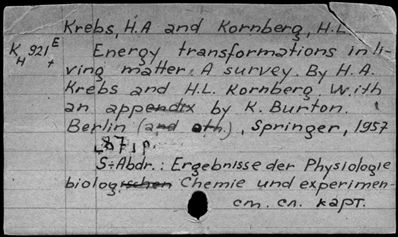 Krebs, H.A and Kornberg, H.L.
K H 921 E + Energy transformations in li-
ving matter. A survey. By H.A.
Krebs and H.L. Kornberg. With
an appendix by K. Burton.
Berlin (and oth.), Springer, 1957
87 p.
S-Abdr.: Ergebnisse der Physiologie
biologischen Chemie und experimen-
cm. сл. карт.